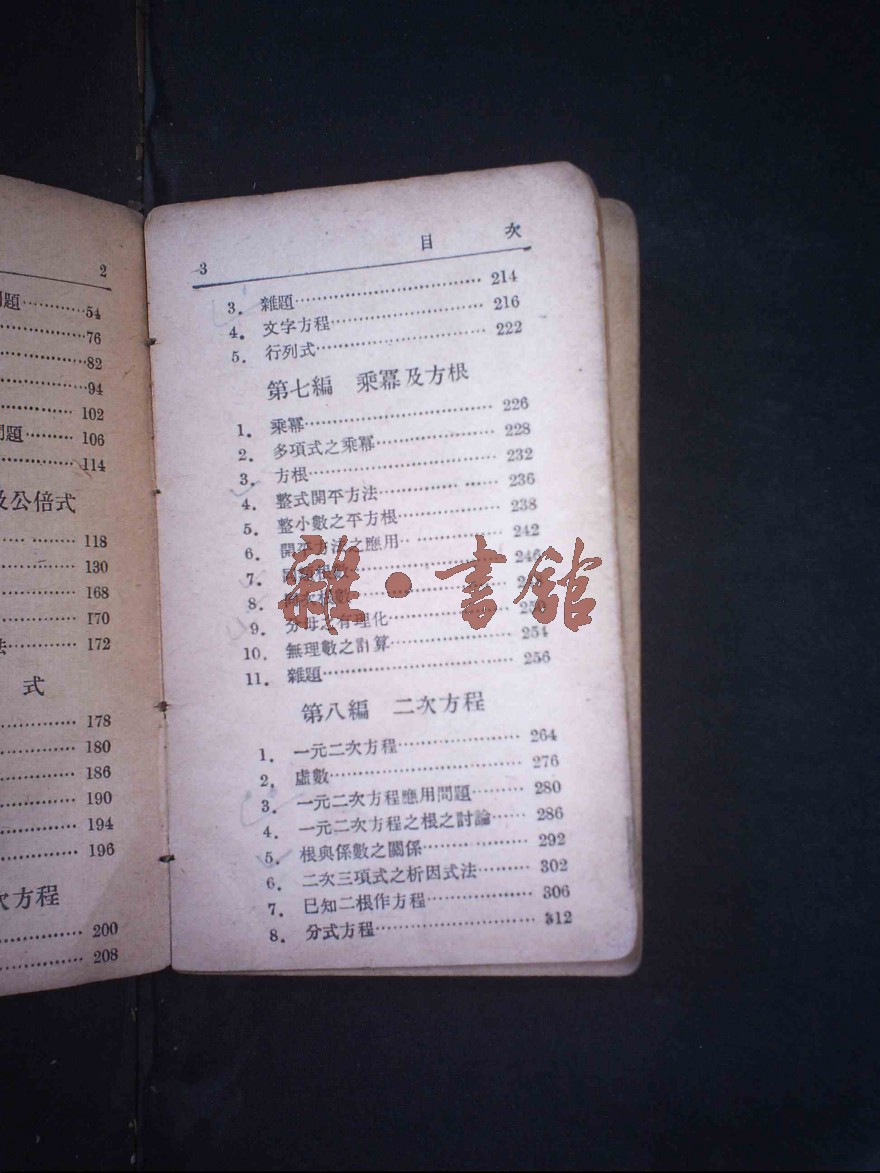 2
問題………54
………76
………82
………94
………102
問題………106
………114
及公倍式
………118
………130
………168
………170
法………172
式
………178
………180
………186
………190
………194
………196
次方程
………200
………208
3 目 次
3. 雜題………214
4. 文字方程………216
5. 行列式………222
第七編 乘冪及方根
1. 乘冪………226
2. 多項式之乘冪………228
3. 方根………232
4. 整式開平方法………236
5. 整小數之平方根………238
6. 開平方法之應用………242
7. 根數………246
8.
9. 分母之有理化………250
10. 無理數之計算………254
11. 雜題………256
第八編 二次方程
1. 一元二次方程………264
2. 虛數………276
3. 一元二次方程應用問題………280
4. 一元二次方程之根之討論……286
5. 根與係數之關係………292
6. 二次三項式之析因式法………302
7. 已知二根作方程………306
8. 分式方程………312
雜·書館